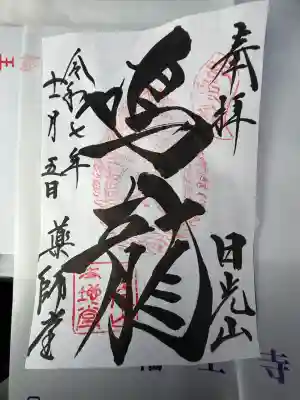 奉拝
日光山
鳴龍
令和七年
十一月五日
薬師堂
寺